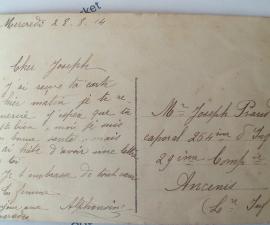 Mercredi 28.8.14
Cher Joseph
J'ai reçu ta carte
hier matin je te re-
mercie j'espère que tu
es bien, moi je suis
en bonne santé, mais
j'ai hâte d'avoir une lettre
de toi
Je t'embrasse de tout cœur
ta femme
Alphonsine
Mr Joseph
caporal 264ième d'Inf
29ième Comp ie
Ancenis
(Le Inf)